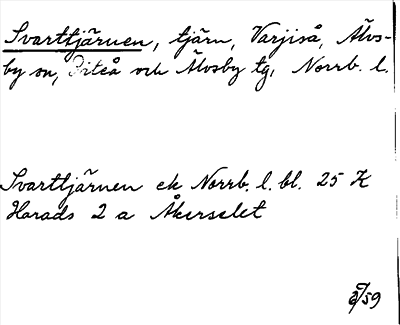 Svarttjärnen, tjärn, Varjiså, Älvs-
by sn, Piteå och Älvsby tg, Norrb. l.
Svarttjärnen ek Norrb. l. bl. 25 K
Harads 2 a Åkerselet
/59